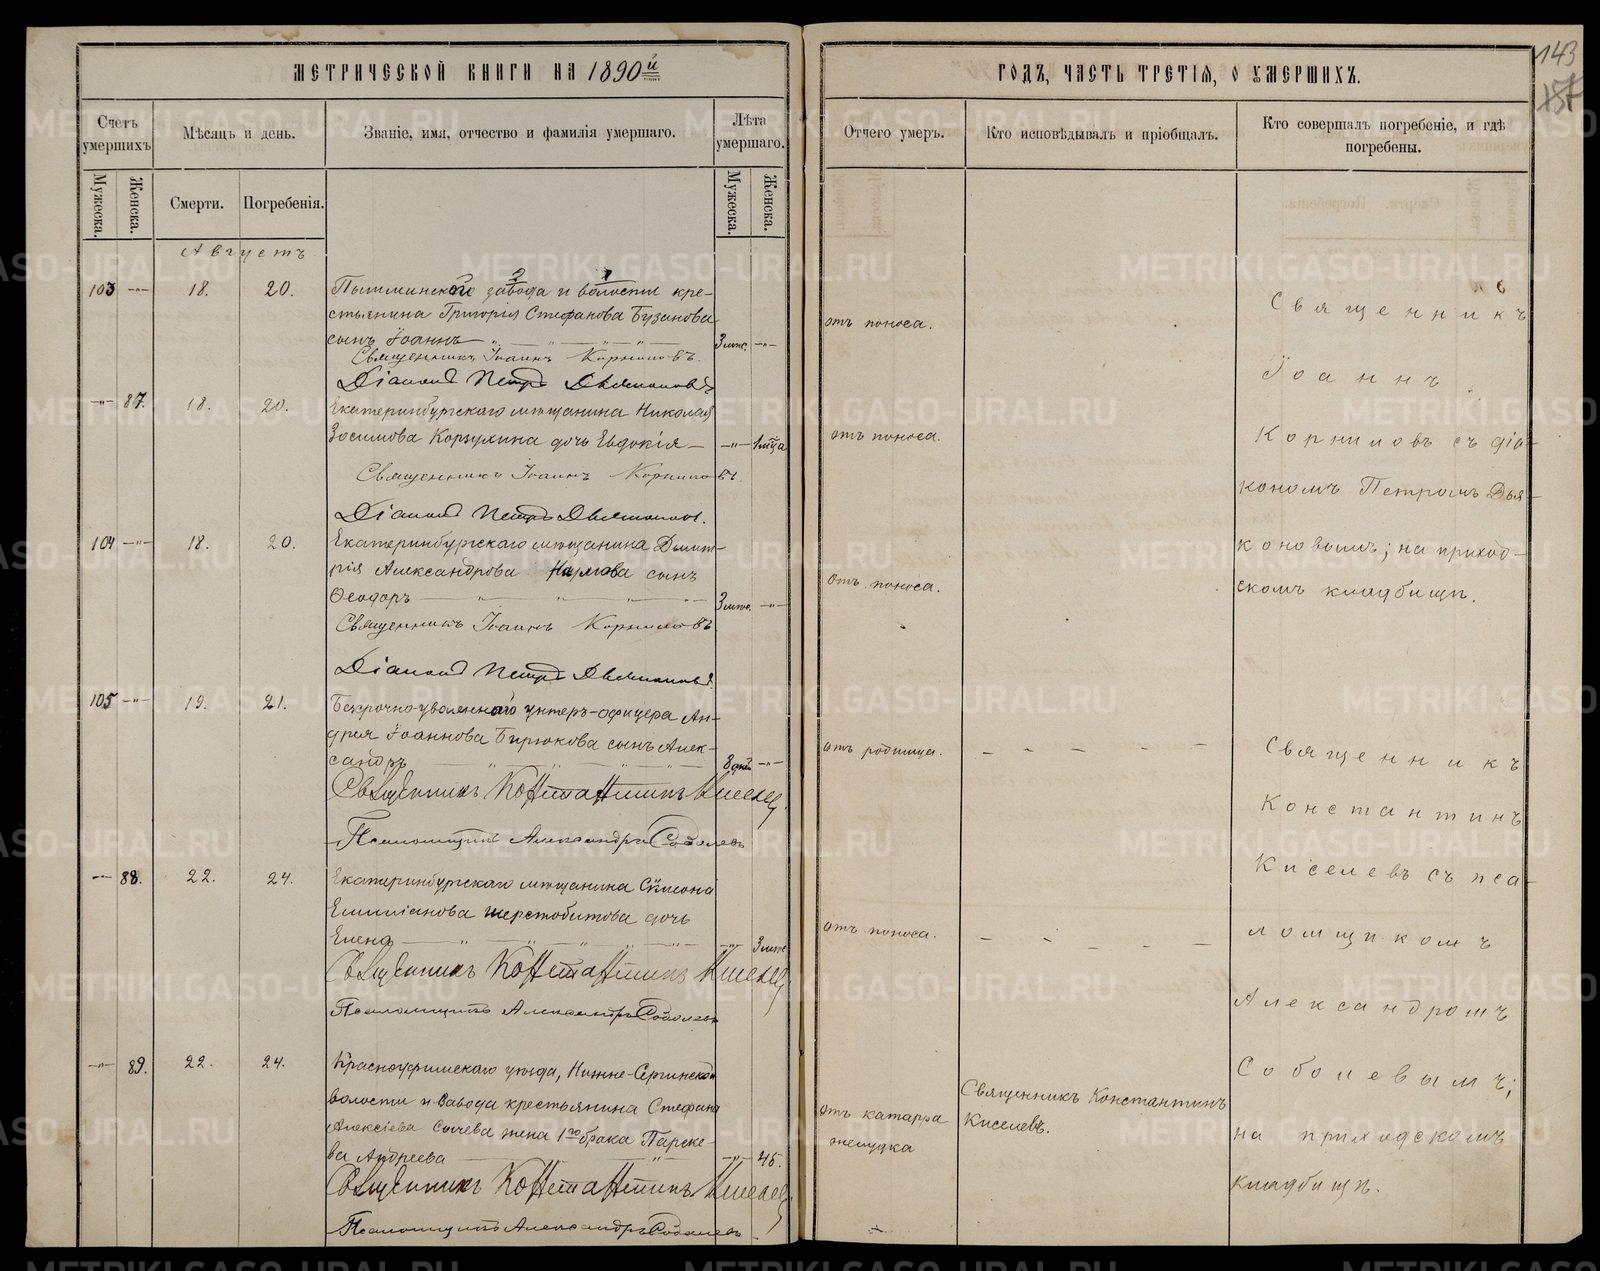 МЕТРИЧЕСКОЙ КНИГИ НА 1890й
Счетъ умершихъ
Мѣсяцъ и день.
Званіе, имя, отчество и фамилія умершаго.
Лѣта умершаго.
Мужеска.
Женска.
Смерти.
Погребенія.
Мужеска.
Женска.
Августъ
103 —"— 18. 20. Пышминскаго завода и волости кре-
стьянина Григорія Стефанова Бузанова
сынъ Іоаннъ 3 мѣс. —"—
Священникъ Іоаннъ Корниловъ.
Діаконъ Петръ Дьяконовъ.
—"— 87. 18. 20. Екатеринбургскаго мѣщанина Николая
Зосимова Корзухина дочь Евдокія — —"— 1 мѣсца
Священникъ Іоаннъ Корниловъ.
Діаконъ Петръ Дьяконовъ.
104 —"— 18. 20. Екатеринбургскаго мѣщанина Димит-
рія Александрова сынъ
Ѳеодоръ 3 мѣс. —"—
Священникъ Іоаннъ Корниловъ
Діаконъ Петръ Дьяконовъ.
105 —"— 19. 21. Безсрочно-уволеннаго унтеръ-офицера Ан-
дрея Іоаннова Бирюкова сынъ Алек-
сандръ 8 дней —"—
Священникъ Константинъ Киселевъ.
Псаломщикъ Александръ Соболевъ
—"— 88. 22. 24. Екатеринбургскаго мѣщанина Сімеона
Емиліанова Шерстобитова дочь
Елена —"— 3 мѣс.
Священникъ Константинъ Киселевъ
Псаломщикъ Александръ Соболевъ
—"— 89. 22. 24. Красноуфимскаго уѣзда, Нижне-Сергинской
волости и завода крестьянина Стефана
Алексіева Сычева жена 1го брака Параске-
ва Андреева —"— 45.
Священникъ Константинъ Киселевъ
Псаломщикъ Александръ Соболевъ.
143
ГОДЪ, ЧАСТЬ ТРЕТІЯ, О УМЕРШИХЪ.
Отчего умеръ.
Кто исповѣдывалъ и пріобщалъ.
Кто совершалъ погребеніе, и гдѣ погребены.
отъ поноса.
отъ поноса.
отъ поноса.
отъ родимца.
отъ поноса.
отъ катарра
желудка
Священникъ Константинъ
Киселевъ.
Священникъ
Іоаннъ
Корниловъ съ діа-
кономъ Петромъ Дья-
коновымъ; на приход-
скомъ кладбищѣ.
Священникъ
Константинъ
Киселевъ съ пса-
ломщикомъ
Александромъ
Соболевымъ;
на приходскомъ
кладбищѣ.
METRIKI.GASO-URAL.RU